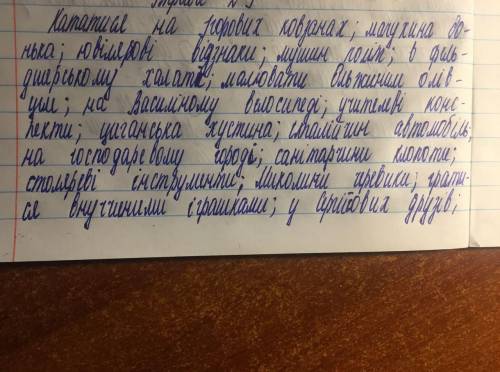 Кататися на Ігорових ковзанах; мачухина до-
нька; ювілярові відзнаки; мушин політ; в фель-
дшерському халаті; малювати Інжиним олів-
цем; на Василіному велосипеді; учителеві конс-
пекти; циганська хустина; Наталиїн автомобіль;
на господаревому городі; санітарчині клопоти;
столяреві інструменти, Миколині черевики; грати-
ся внуччиними іграшками; у братових друзів;